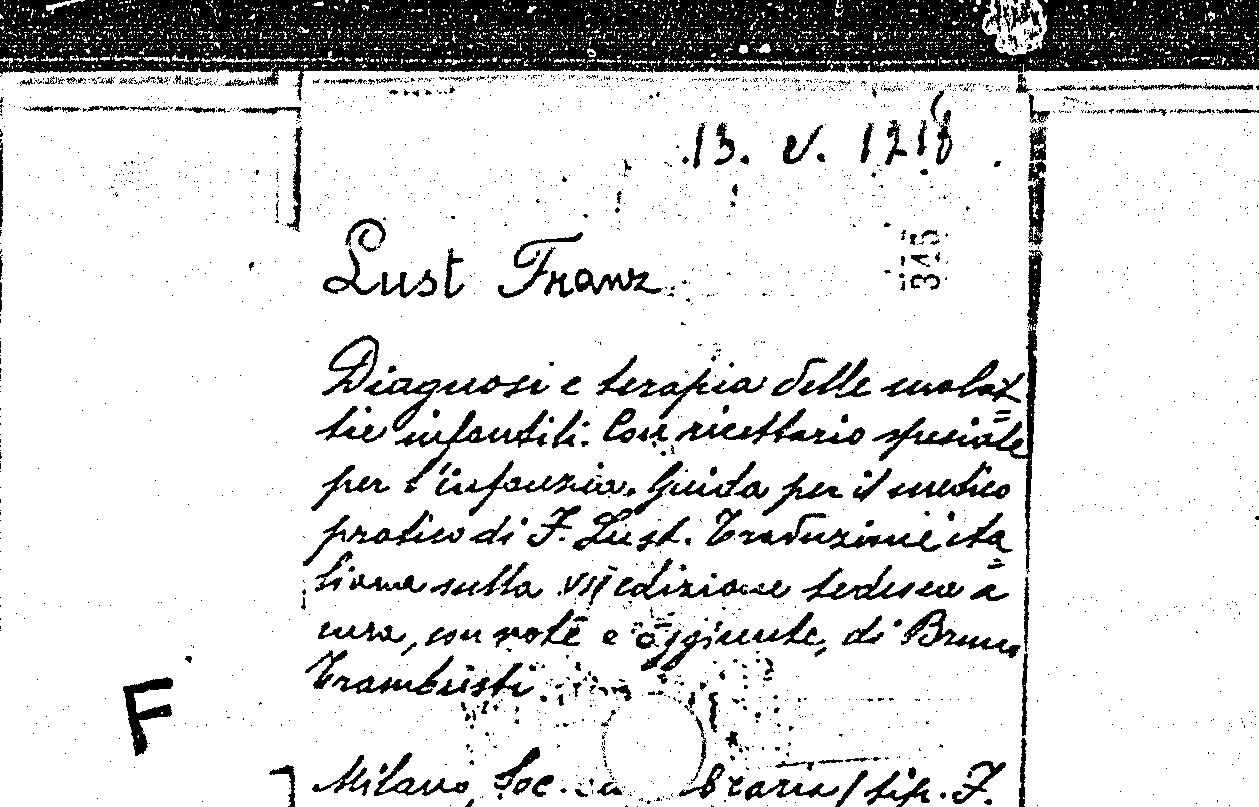 13. V. 1218
345
Lust Franz
Diagnosi e terapia delle malat=
tie infantili. Con ricettario speciale
per l'infanzia. Guida per il medico
pratico di F. Lust. Traduzione ita=
liana sulla VII edizione tedesca a
cura, con note e aggiunte, di Bruno
Trambusti.
F
Milano, Soc. braria (tip. F.